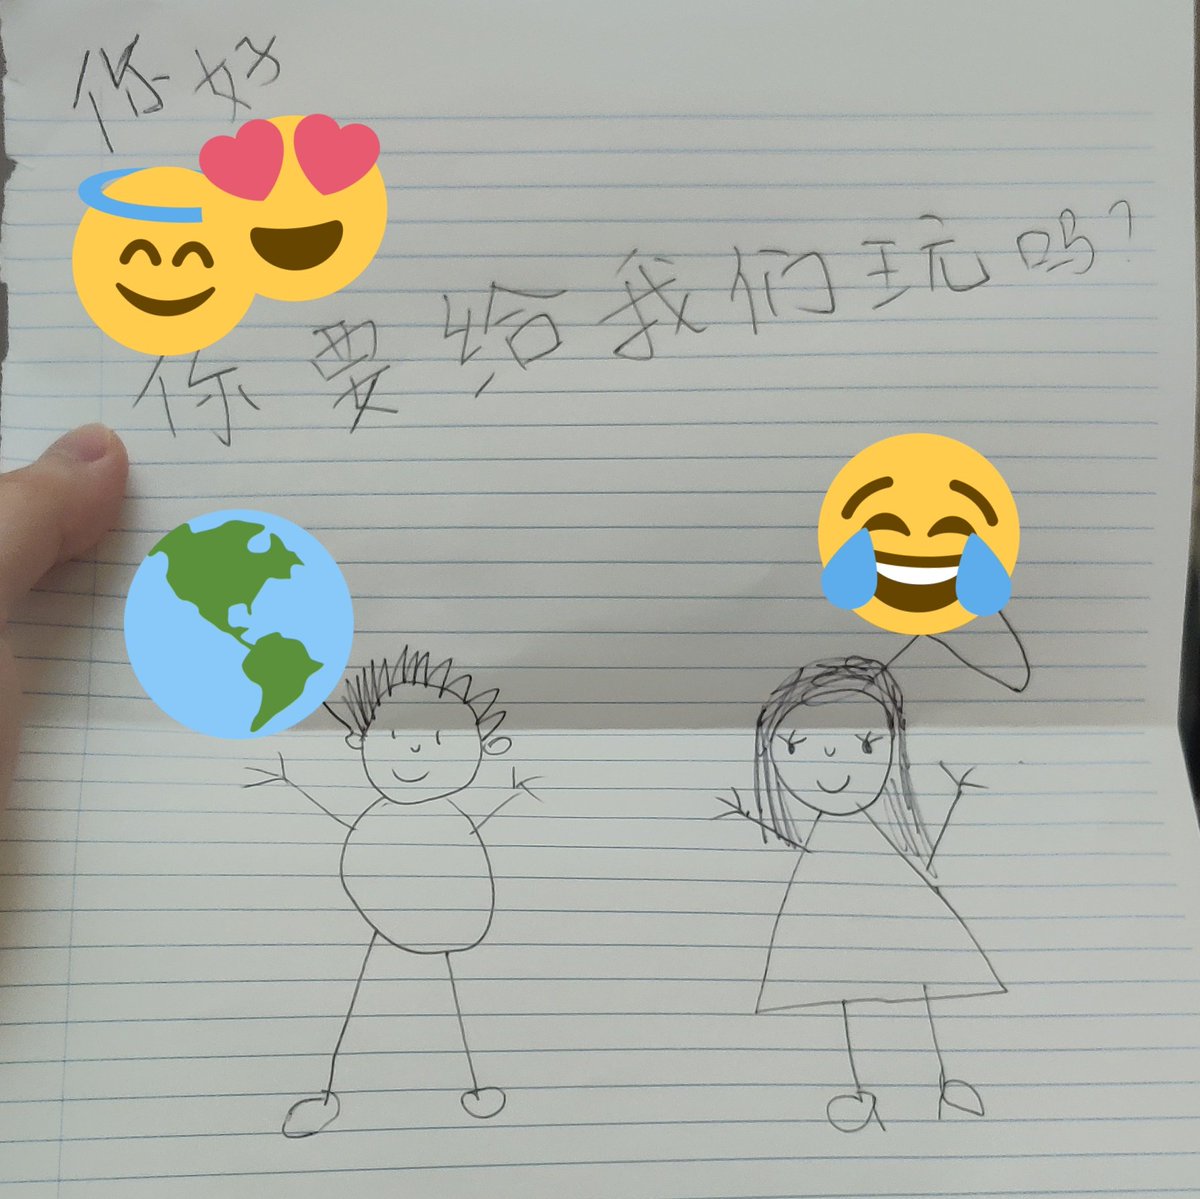 你好
你要给我们玩吗?